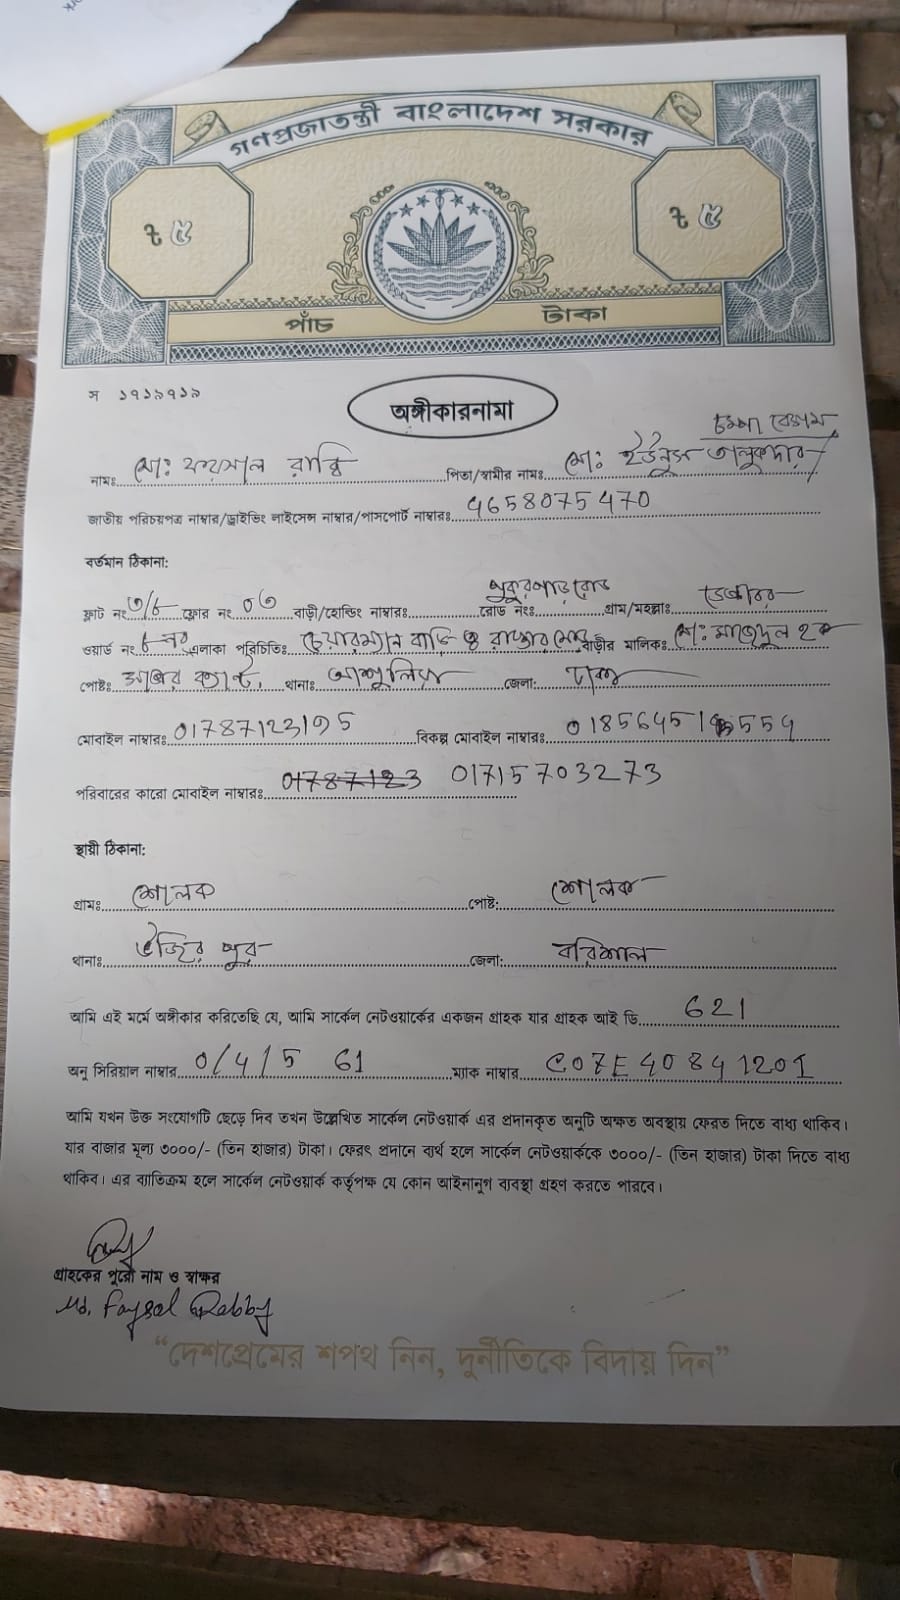 গণপ্রজাতন্ত্রী বাংলাদেশ সরকার
৳ ৫ ৳ ৫
পাঁচ টাকা
স ১৭১৯৭১৯
অঙ্গীকারনামা
চম্পা বেগম
নামঃ মোঃ ফয়সাল রাব্বি পিতা/স্বামীর নামঃ মোঃ ইউনুস তালুকদার
জাতীয় পরিচয়পত্র নাম্বার/ড্রাইভিং লাইসেন্স নাম্বার/পাসপোর্ট নাম্বারঃ 4658075470
বর্তমান ঠিকানা:
ফ্লাট নং ৩/৮ ফ্লোর নং ০৩ বাড়ী/হোল্ডিং নাম্বারঃ রোড নংঃ পুকুরপাড় রোড গ্রাম/মহল্লাঃ
ওয়ার্ড নং ৮ নং এলাকা পরিচিতিঃ চেয়ারম্যান বাড়ি ও রাজ্জার বাড়ীর মালিকঃ মোঃ মাজেদুল হক
পোষ্টঃ থানাঃ আশুলিয়া জেলা: ঢাকা
মোবাইল নাম্বারঃ 01787123195 বিকল্প মোবাইল নাম্বারঃ
পরিবারের কারো মোবাইল নাম্বারঃ 01787123 01715703273
স্থায়ী ঠিকানা:
গ্রামঃ শোলক পোষ্ট: শোলক
থানাঃ উজিরপুর জেলা: বরিশাল
আমি এই মর্মে অঙ্গীকার করিতেছি যে, আমি সার্কেল নেটওয়ার্কের একজন গ্রাহক যার গ্রাহক আই ডি 621
অনু সিরিয়াল নাম্বার 0/4/5 61 ম্যাক নাম্বার C07E40841201
আমি যখন উক্ত সংযোগটি ছেড়ে দিব তখন উল্লেখিত সার্কেল নেটওয়ার্ক এর প্রদানকৃত অনুটি অক্ষত অবস্থায় ফেরত দিতে বাধ্য থাকিব।
যার বাজার মূল্য ৩০০০/- (তিন হাজার) টাকা। ফেরৎ প্রদানে ব্যর্থ হলে সার্কেল নেটওয়ার্ককে ৩০০০/- (তিন হাজার) টাকা দিতে বাধ্য
থাকিব। এর ব্যতিক্রম হলে সার্কেল নেটওয়ার্ক কর্তৃপক্ষ যে কোন আইনানুগ ব্যবস্থা গ্রহণ করতে পারবে।
গ্রাহকের পুরো নাম ও স্বাক্ষর
Md. Faysal Rabby
“দেশপ্রেমের শপথ নিন, দুর্নীতিকে বিদায় দিন”